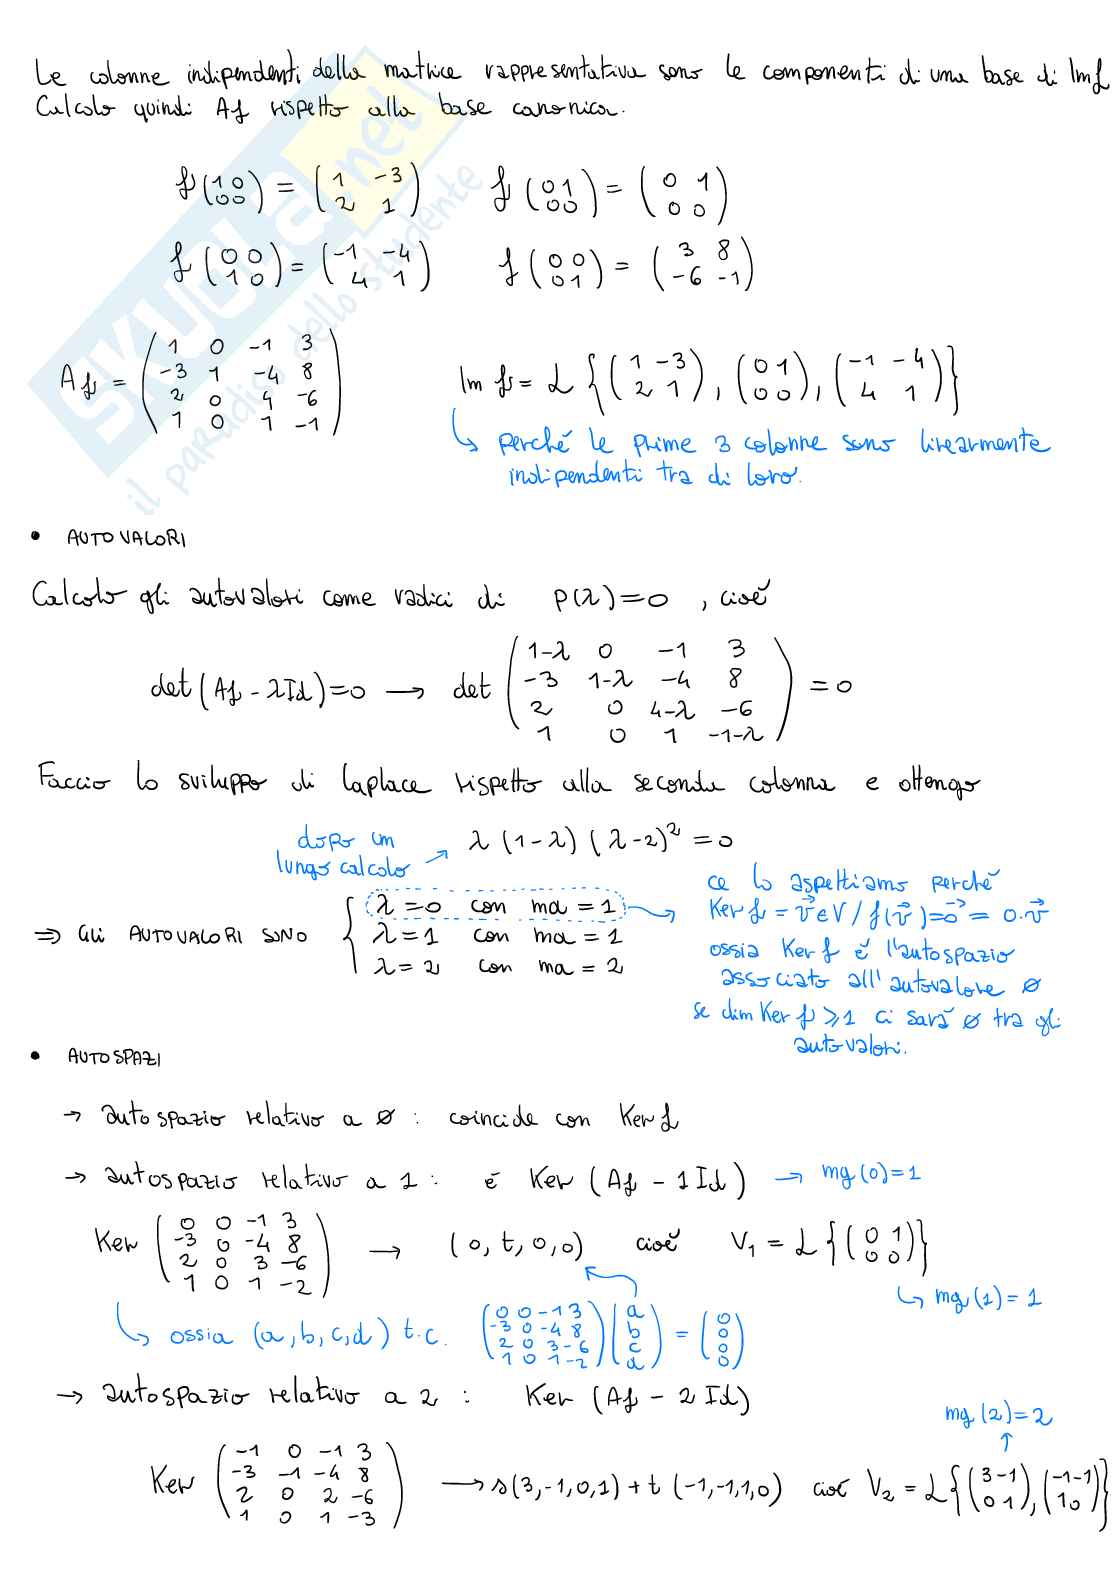 Le colonne indipendenti della matrice rappresentativa sono le componenti di una base di Imf
Calcolo quindi Af rispetto alla base canonica.
f(1 0 / 0 0) = (1 -3 / 2 1)   f(0 1 / 0 0) = (0 1 / 0 0)
f(0 0 / 1 0) = (-1 -4 / 4 1)   f(0 0 / 0 1) = (3 8 / -6 -1)
Af = (1 0 -1 3 / -3 1 -4 8 / 2 0 4 -6 / 1 0 1 -1)   Im f = L {(1 -3 / 2 1), (0 1 / 0 0), (-1 -4 / 4 1)}
↳ perché le prime 3 colonne sono linearmente
indipendenti tra di loro.
SKUOLA.net
il paradiso dello studente
• AUTOVALORI
Calcolo gli autovalori come radici di p(λ)=0, cioè
det(Af - λId)=0 → det (1-λ 0 -1 3 / -3 1-λ -4 8 / 2 0 4-λ -6 / 1 0 1 -1-λ) = 0
Faccio lo sviluppo di laplace rispetto alla seconda colonna e ottengo
dopo un
lungo calcolo → λ (1-λ) (λ-2)² = 0
⇒ GLI AUTOVALORI SONO { λ=0 con ma = 1 →
λ=1 con ma = 1
λ=2 con ma = 2
ce lo aspettiamo perché
Ker f = v⃗ ∈ V / f(v⃗)=0⃗ = 0·v⃗
ossia Ker f è l'autospazio
associato all'autovalore ∅
se dim Ker f ⩾ 1 ci sarà ∅ tra gli
autovalori.
• AUTOSPAZI
→ autospazio relativo a ∅ : coincide con Ker f
→ autospazio relativo a 1 : è Ker (Af - 1 Id) → mg(0)=1
Ker (0 0 -1 3 / -3 0 -4 8 / 2 0 3 -6 / 1 0 1 -2) → (0, t, 0, 0) cioè V₁ = L {(0 1 / 0 0)}
↳ mg(1) = 1
↳ ossia (a,b,c,d) t.c. (0 0 -1 3 / -3 0 -4 8 / 2 0 3 -6 / 1 0 1 -2) (a / b / c / d) = (0 / 0 / 0 / 0)
→ autospazio relativo a 2 : Ker (Af - 2 Id)
mg(2)=2
↑
Ker (-1 0 -1 3 / -3 -1 -4 8 / 2 0 2 -6 / 1 0 1 -3) → s(3,-1,0,1) + t (-1,-1,1,0) cioè V₂ = L {(3 -1 / 0 1), (-1 -1 / 1 0)}